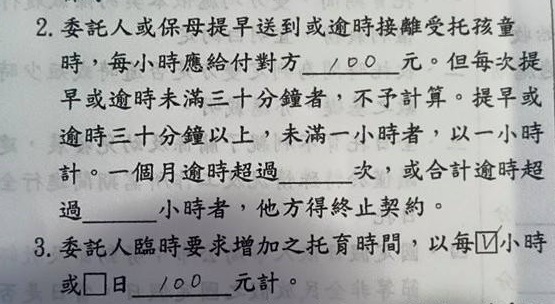 2. 委託人或保母提早送到或逾時接離受托孩童
時，每小時應給付對方 100 元。但每次提
早或逾時未滿三十分鐘者，不予計算。提早或
逾時三十分鐘以上，未滿一小時者，以一小時
計。一個月逾時超過______次，或合計逾時超
過______小時者，他方得終止契約。
3. 委託人臨時要求增加之托育時間，以每☑小時
或□日 100 元計。